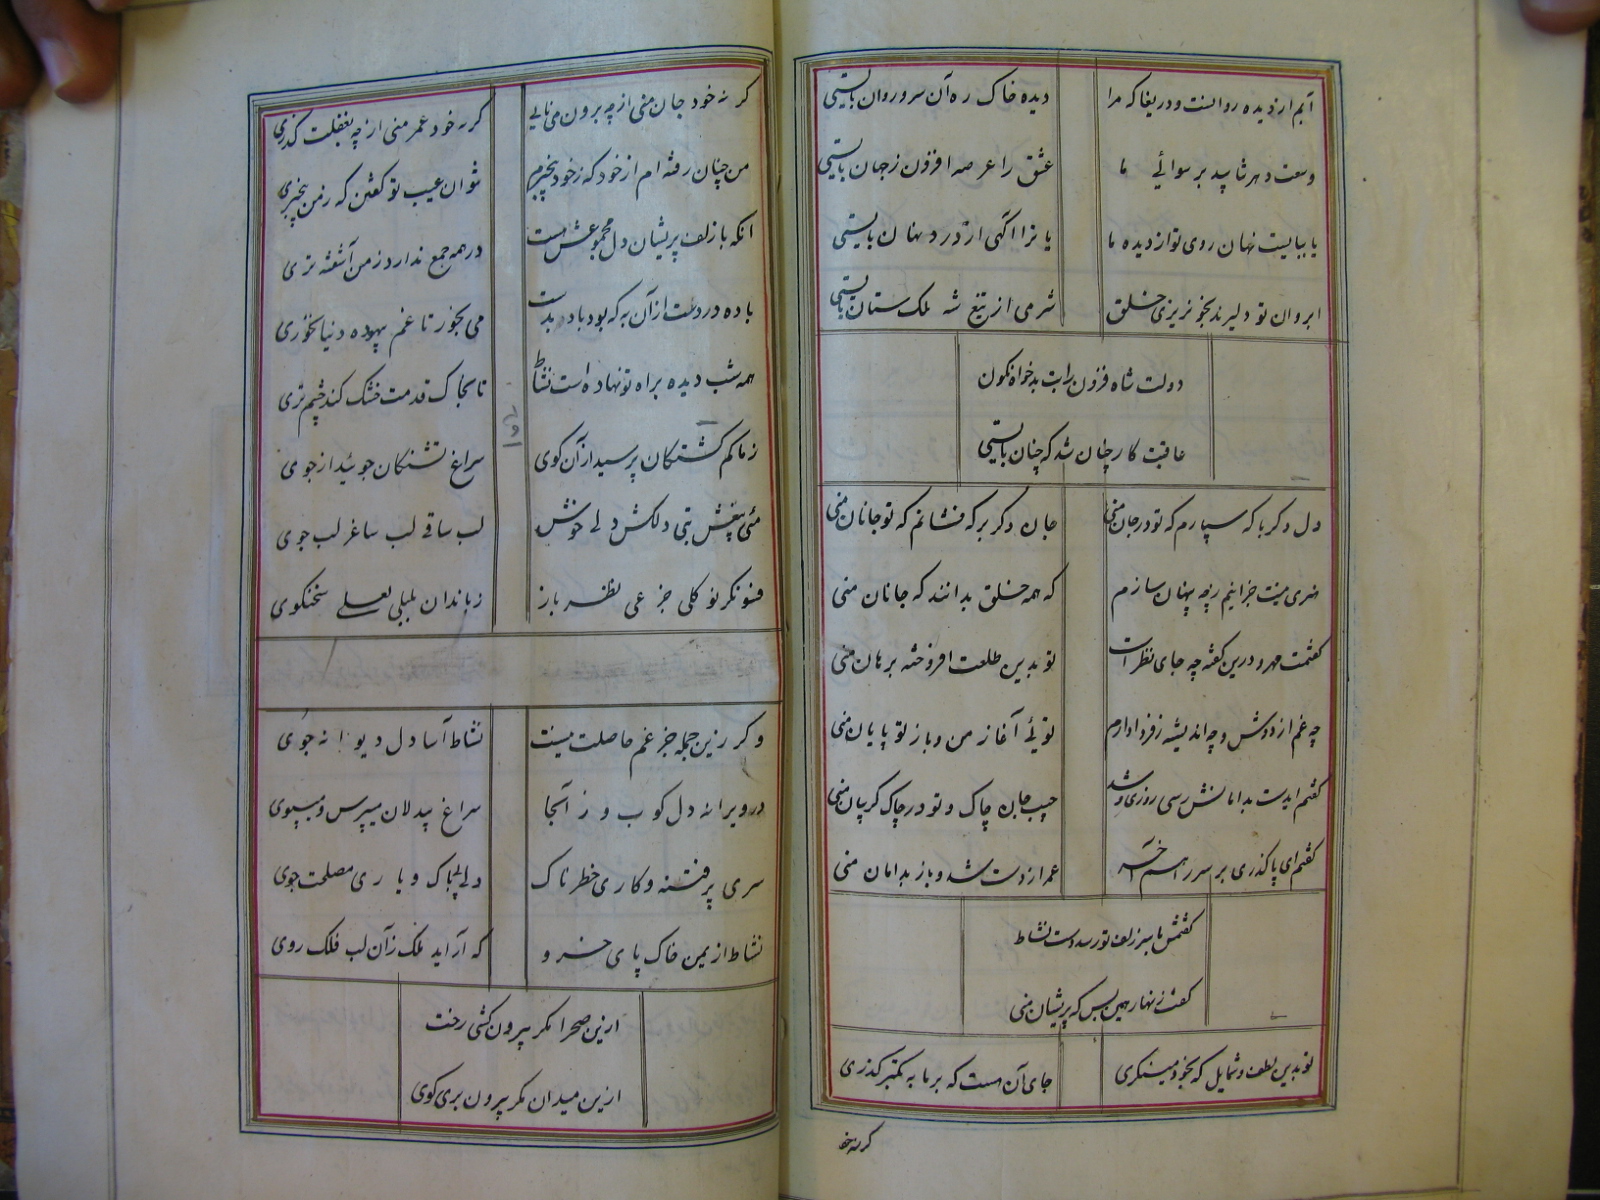 آبم از دیده روانست و دریغا که مرا دیده خاک ره آن سرو روان بایستی
وسعت دهر نشاید بر سوائی ما عشق را عرصه افزون ز جهان بایستی
یا ببایست نهان روی تو از دیده ما یا ترا آگهی از درد نهان بایستی
ابروان تو دلیرند بخونریزی خلق شرمی از تیغ شه ملک ستان بایستی
دولت شاه فزون رایت بدخواه نگون
عاقبت کار چنان شد که چنان بایستی
دل دگر با که سپارم که تو در جان منی جان دگر بر که فشانم که تو جانان منی
هنری نیست جز اینم ز چه پنهان سازم که همه خلق بدانند که جانان منی
گفتمت مهر و درین گفته چه جای نظر است تو بدین طلعت افروخته برهان منی
چه غم از دوش و چه اندیشه ز فردا دارم توئی آغاز من و باز تو پایان منی
گفتم ایدست بدامانش رسی روزی و شد جیب جان چاک و تو در چاک گریبان منی
گفتم ای پا گذری بر سر راهم آخر عمر از دست شد و باز بدامان منی
گفتمش تا بسر زلف تو رسد دست نشاط
گفت زنهار همین بس که پریشان منی
تو بدین لطف و شمایل که بخود مینگری جای آن هست که بر ما به تکبر گذری
گر نه خود
گر نه خود جان منی از چه برون می نایی گر نه خود عمر منی از چه بغفلت گذری
من چنان رفته ام از خود که ز خود بیخبرم نتوان عیب تو گفتن که ز من بیخبری
آنکه با زلف پریشان دل مجموعش هست در همه جمع ندارد ز من آشفته تری
باده در دست از آن به که بود باد بدست می بخور تا غم بیهوده دنیا نخوری
همه شب دیده براه تو نهاده است نشاط تا بخاک قدمت خشک کند چشم تری
ز ما گم گشتگان پرسید از آن کوی سراغ تشنگان جوئید از جوی
مئی بیغش بتی دلکش دلی خوش لب ساقی لب ساغر لب جوی
فسونگر نو گلی جزعی نظر باز زباندان بلبلی لعلی سخنگوی
وگر زین جمله جز غم حاصلت نیست نشاط آسا دل دیوانه جوی
در ویرانه دل کوب و ز آنجا سراغ بیدلان میپرس و میپوی
سری پر فتنه و کاری خطرناک دلی بیباک و یاری مصلحت جوی
نشاط از یمن خاک پای خسرو که آراید ملک زآن لب فلک روی
ازین صحرا مگر بیرون کشی رخت
ازین میدان مگر بیرون بری گوی